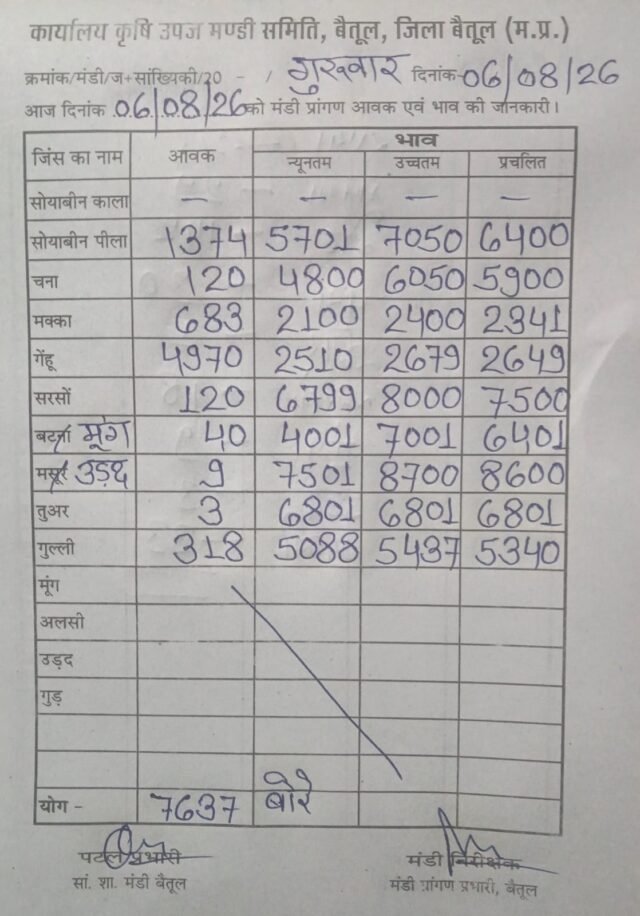 कार्यालय कृषि उपज मण्डी समिति, बैतूल, जिला बैतूल (म.प्र.)
क्रमांक/मंडी/ज+सांख्यिकी/20 - / गुरुवार दिनांक-06/08/26
आज दिनांक 06/08/26 को मंडी प्रांगण आवक एवं भाव की जानकारी।
जिंस का नाम आवक भाव
न्यूनतम उच्चतम प्रचलित
सोयाबीन काला — — — —
सोयाबीन पीला 1374 5701 7050 6400
चना 120 4800 6050 5900
मक्का 683 2100 2400 2341
गेंहू 4970 2510 2679 2649
सरसों 120 6799 8000 7500
बटला मूंग 40 4001 7001 6401
मसूर उड़द 9 7501 8700 8600
तुअर 3 6801 6801 6801
गुल्ली 318 5088 5437 5340
मूंग
अलसी
उड़द
गुड़
योग - 7637 बोरे
पटल प्रभारी मंडी निरीक्षक
सां. शा. मंडी बैतूल मंडी प्रांगण प्रभारी, बैतूल